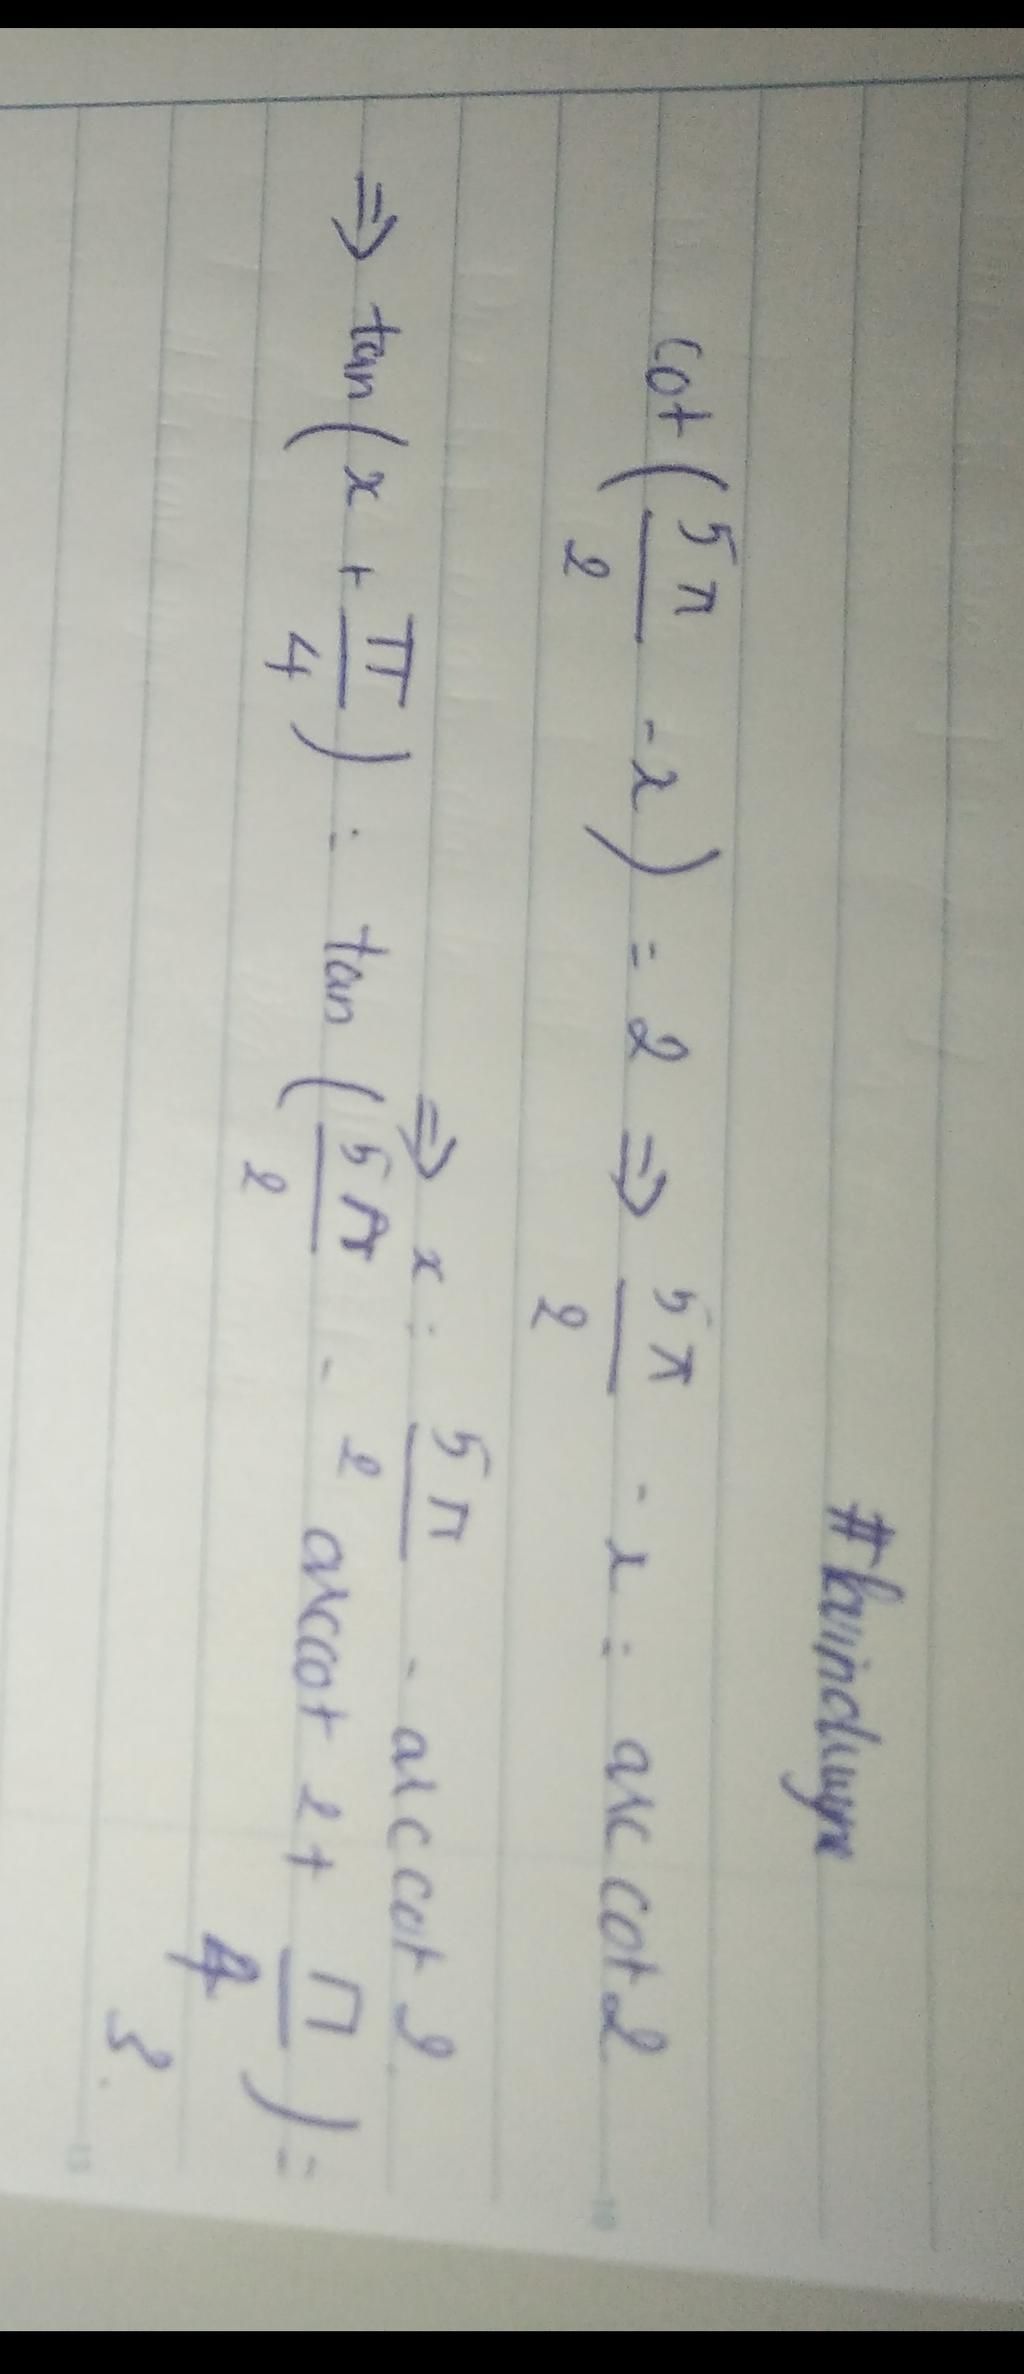 cot(5π/2 - x) = 2 ⇒ 5π/2 - x = arccot 2
⇒ x = 5π/2 - arccot 2
⇒ tan(x + π/4) = tan(5π/2 - arccot 2 + π/4) =